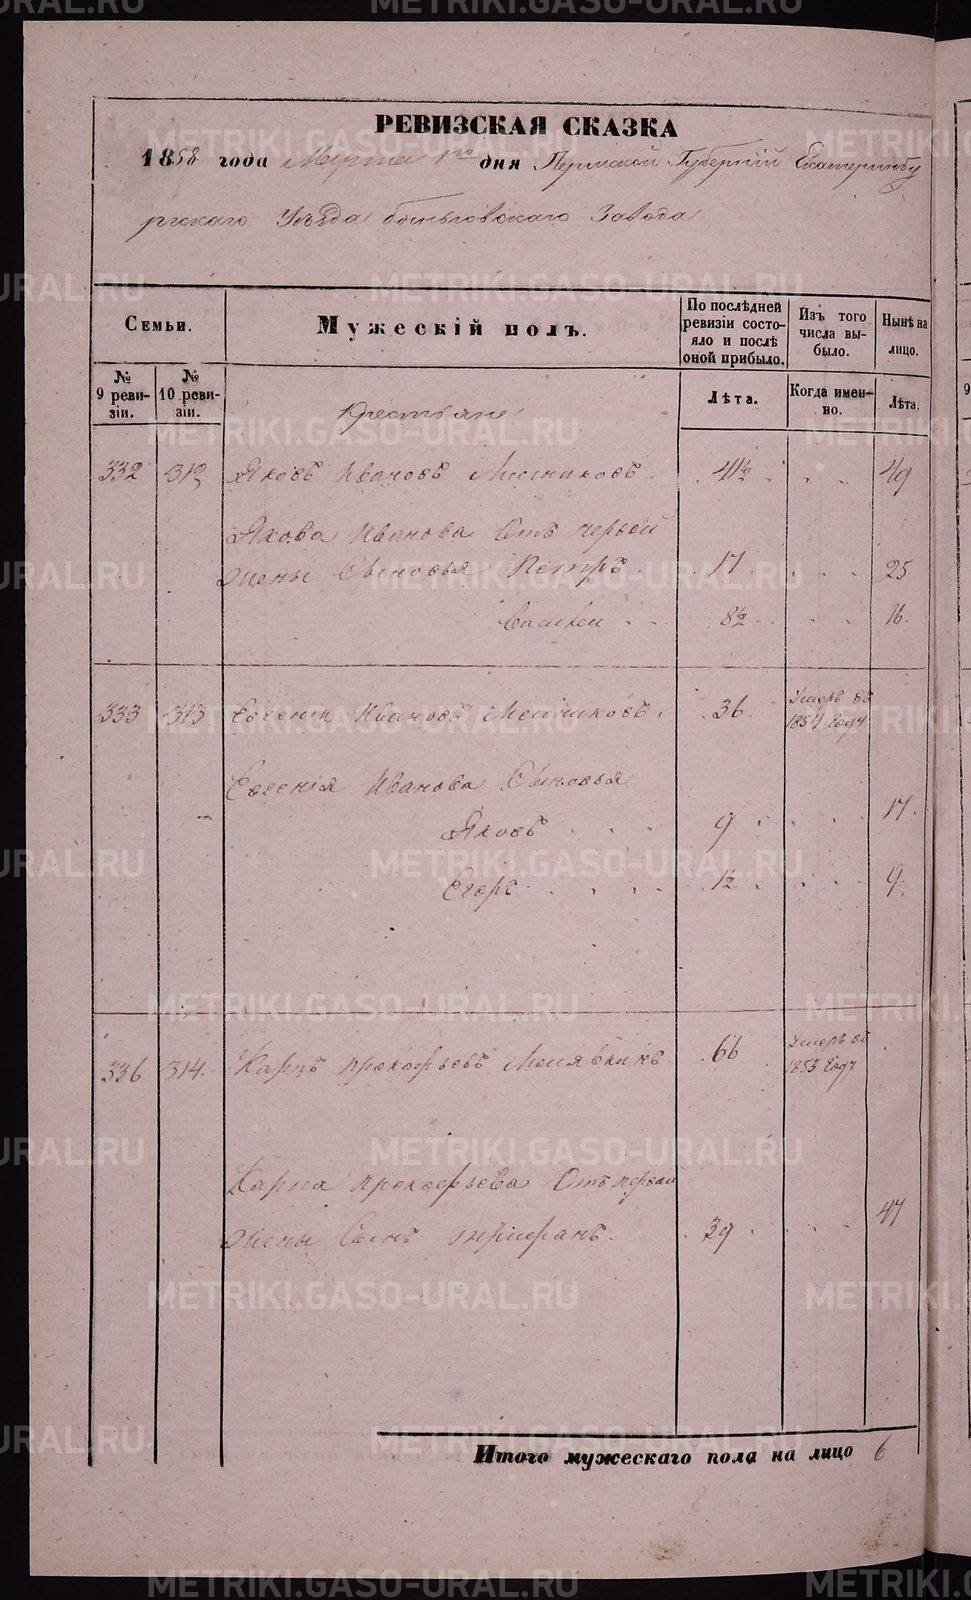 РЕВИЗСКАЯ СКАЗКА
1858 года Марта 1го дня Пермской Губерніи Екатеринбу
ргскаго Уѣзда Быньговскаго Завода
Семьи.
Мужескій полъ.
По послѣдней ревизіи состо-яло и послѣ оной прибыло.
Изъ того числа вы-было.
Нынѣ на лицо.
№ 9 реви-зіи.
№ 10 реви-зіи.
Лѣта.
Когда имен-но.
Лѣта.
Крестьяне
332 312 Яковъ Ивановъ Мясниковъ 41½ 49
Якова Иванова Отъ первой
жены Сыновья Петръ 17 25
Василей 8½ 16
333 313 Евгеній Ивановъ Мясниковъ 36 Умеръ въ 1854 году
Евгенія Иванова Сыновья
Яковъ 9 17
Егоръ 1½ 9
336 314 Карпъ Прокофьевъ 66 Умеръ въ 1853 году
Карпа Прокофьева Отъ первой
жены Сынъ 39 47
Итого мужескаго пола на лицо 6
METRIKI.GASO-URAL.RU